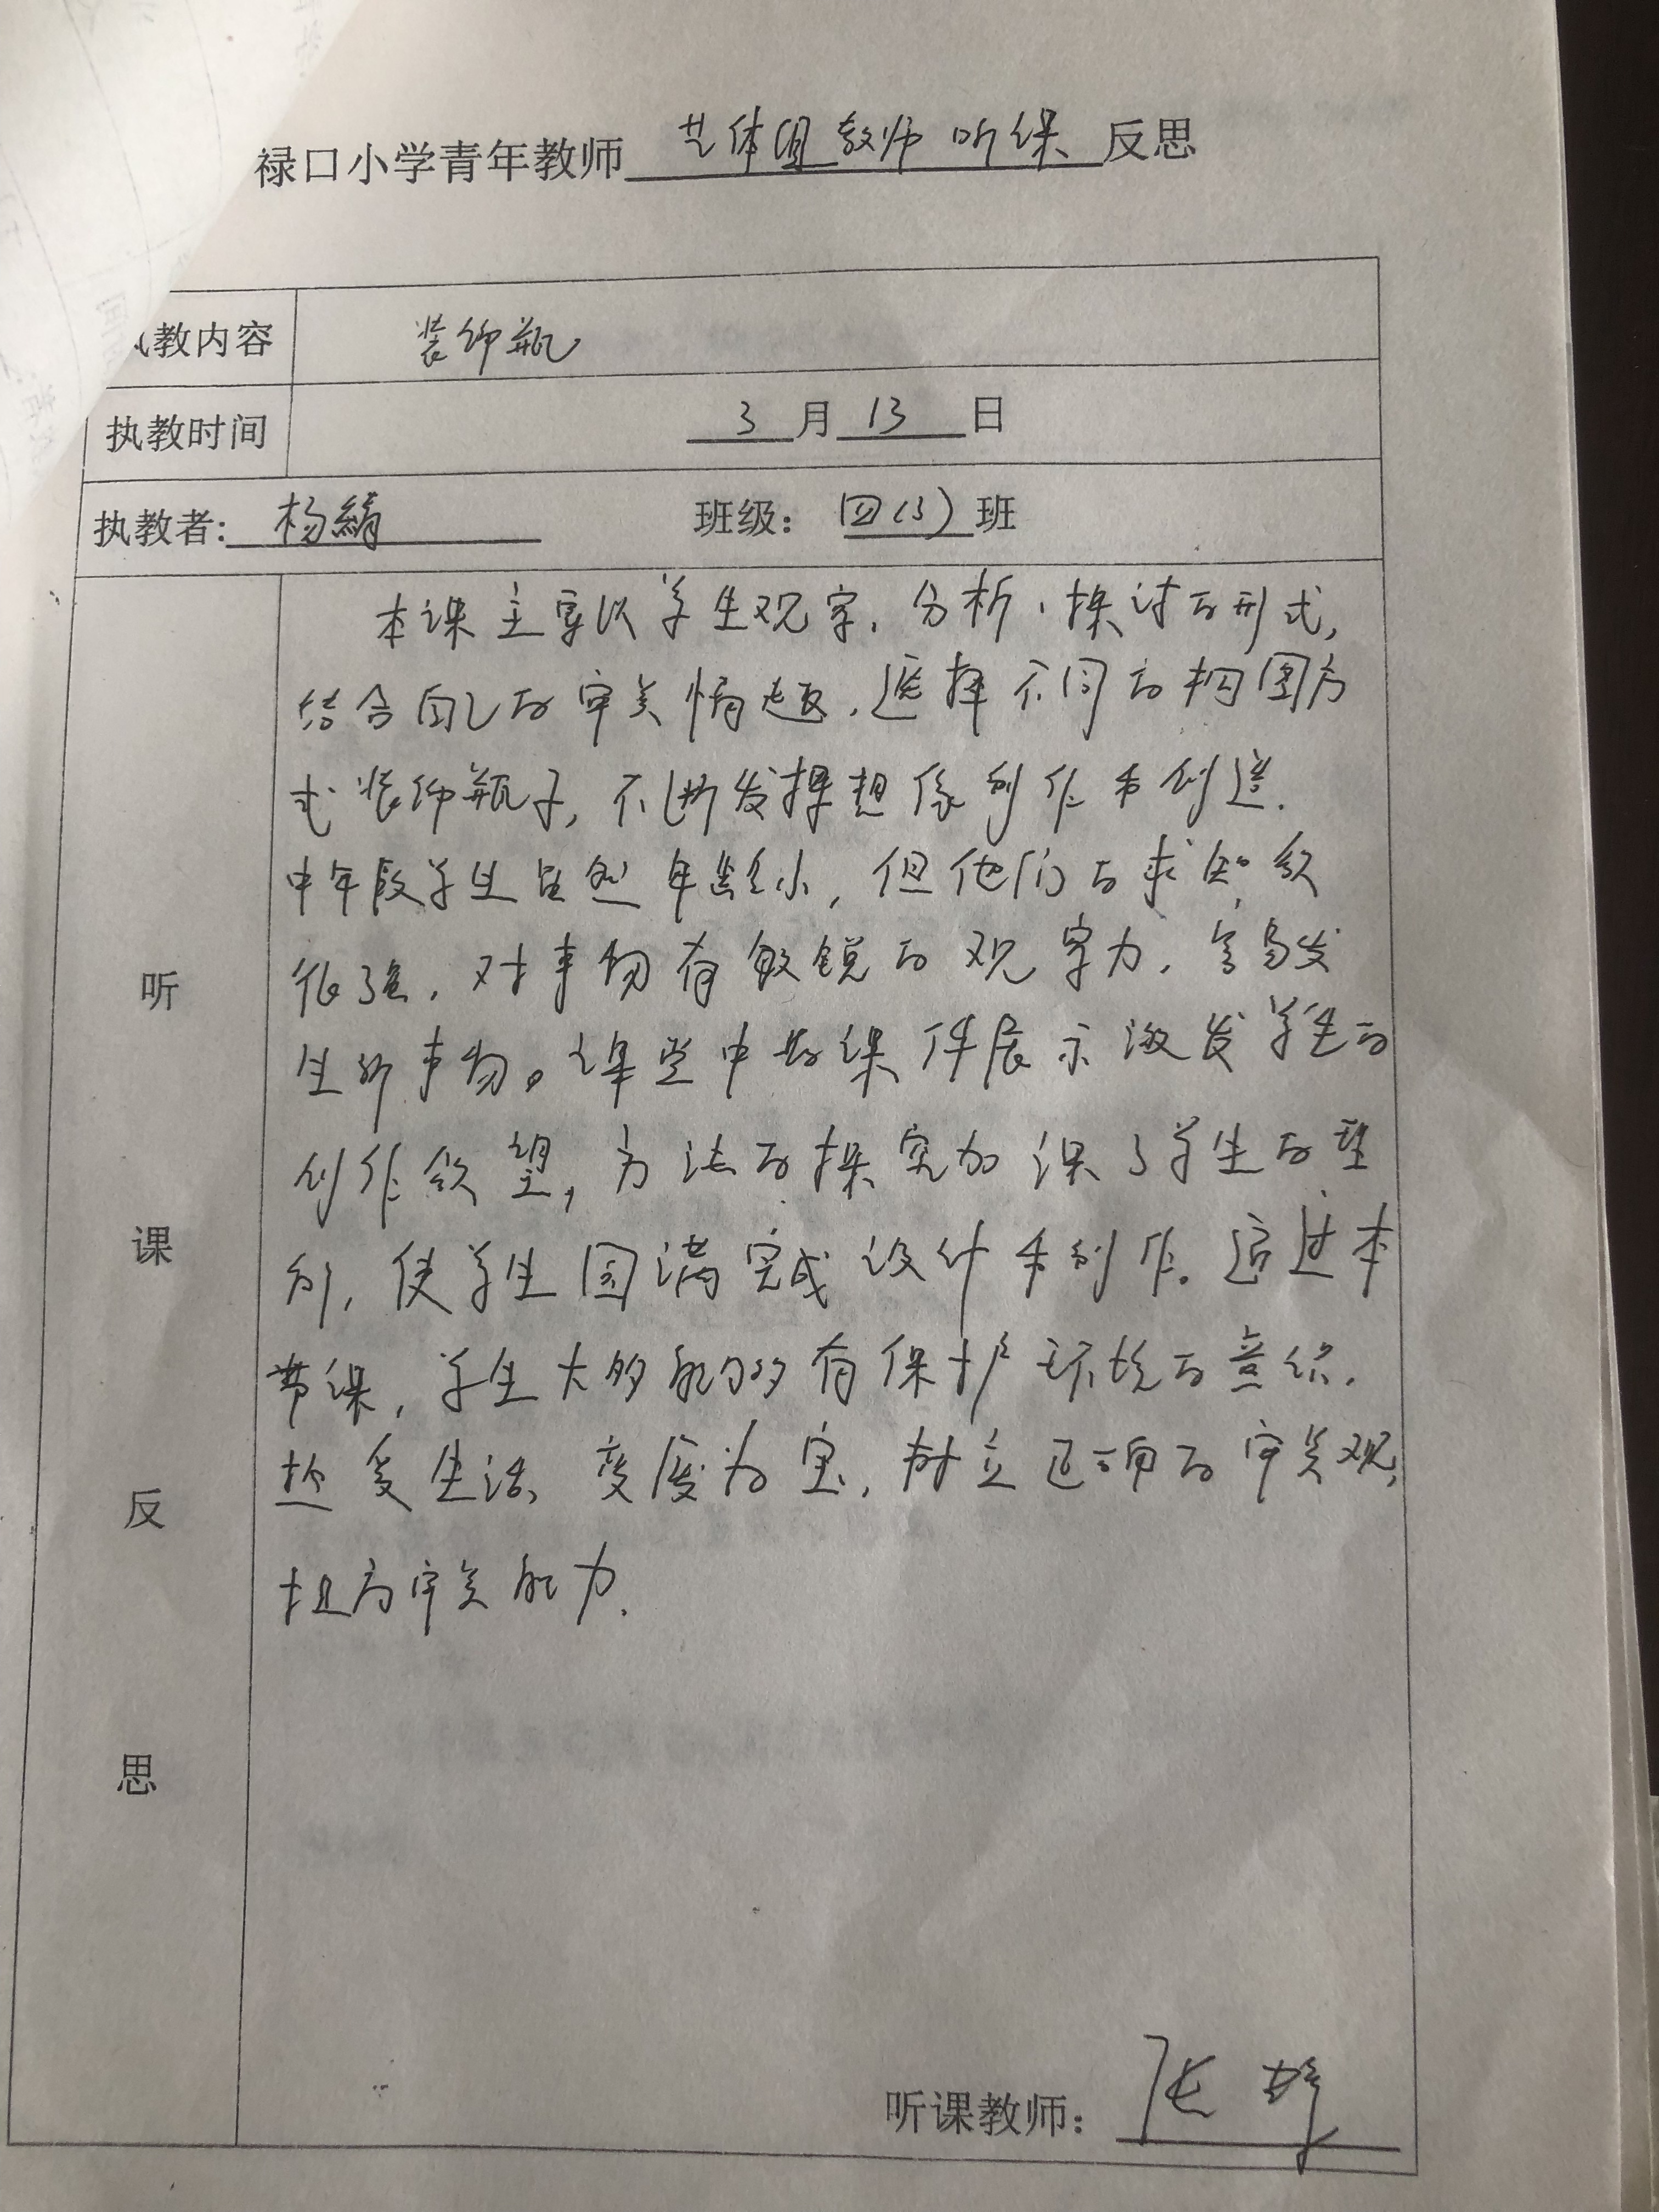 禄口小学青年教师 艺体组教师听课 反思
执教内容 装饰瓶
执教时间 3 月 13 日
执教者: 杨绢 班级: 四(3) 班
听课反思
本课主要以学生观察、分析、探讨的形式,
结合自己的审美情趣,选择不同的构图方
式装饰瓶子,不断发挥想像制作和创造.
中年段学生虽然年龄小,但他们的求知欲
很强,对事物有敏锐的观察力,容易发
生新事物。课堂中好课件展示激发学生的
创作欲望,方法的探究加深了学生的
使学生圆满完成设计和制作。通过本
节课,学生大多能够有保护环境的意识.
热爱生活、变废为宝,树立正确的审美观,
提高审美能力.
听课教师: 张婷